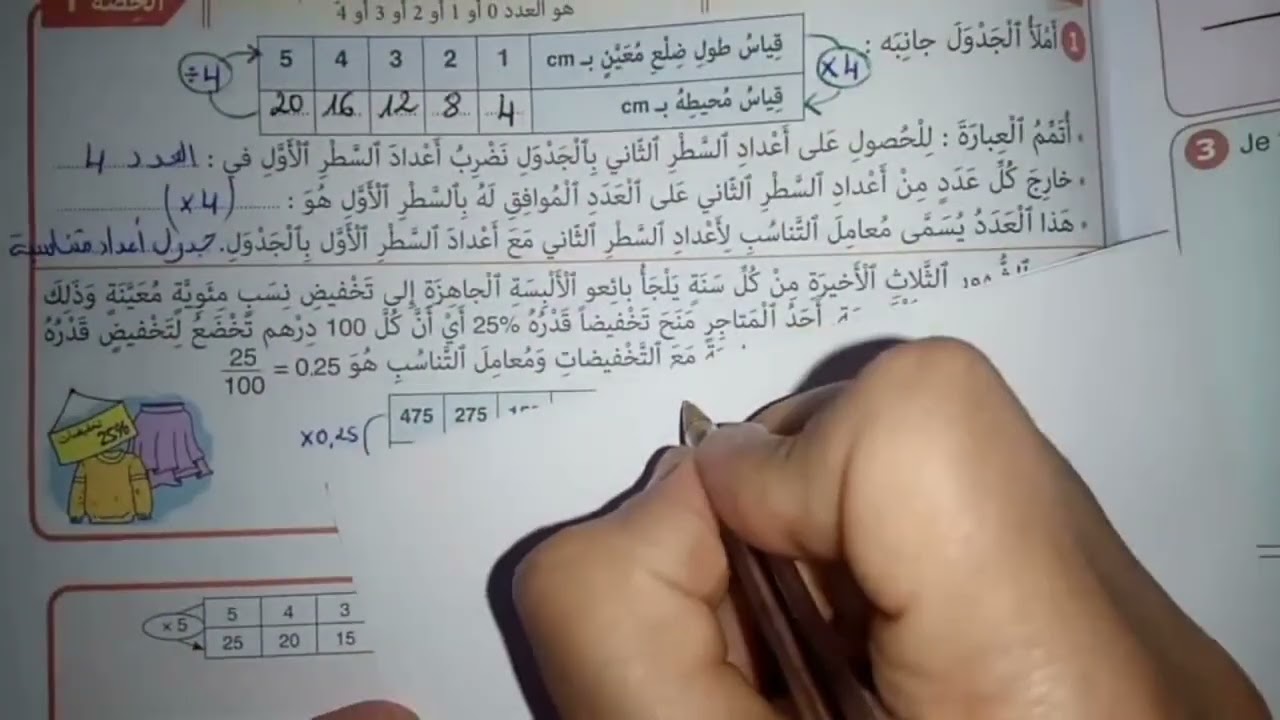 الحصة 1
هو العدد 0 أو 1 أو 2 أو 3 أو 4
1 أَمْلَأُ ٱلْجَدْوَلَ جانِبَه :
قِياسُ طولِ ضِلْعِ مُعَيَّنٍ بـ cm 1 2 3 4 5
قِياسُ مُحيطِهُ بـ cm 4 8 12 16 20
×4
÷4
• أُتَمِّمُ ٱلْعِبارَةَ : لِلْحُصولِ عَلى أَعْدادِ ٱلسَّطْرِ ٱلثّاني بِٱلْجَدْوَلِ نَضْرِبُ أَعْدادَ ٱلسَّطْرِ ٱلْأَوَّلِ في : العدد 4
• خارِجَ كُلِّ عَدَدٍ مِنْ أَعْدادِ ٱلسَّطْرِ ٱلثّاني عَلى ٱلْعَدَدِ ٱلْمُوافِقِ لَهُ بِٱلسَّطْرِ ٱلْأَوَّلِ هُوَ : (×4)
• هَذا ٱلْعَدَدُ يُسَمَّى مُعامِلَ ٱلتَّناسُبِ لِأَعْدادِ ٱلسَّطْرِ ٱلثّاني مَعَ أَعْدادَ ٱلسَّطْرِ ٱلْأَوَّلِ بِالْجَدْوَلِ. جدول أعداد متناسبة
ٱلثَّلاثِ ٱلْأَخيرَةِ مِنْ كُلِّ سَنَةٍ يَلْجَأُ بائِعو ٱلْأَلْبِسَةِ ٱلْجاهِزَةِ إِلى تَخْفيضِ نِسَبٍ مِئَوِيَّةٍ مُعَيَّنَةٍ وَذَلِكَ
أَحَدُ ٱلْمَتاجِرِ مَنَحَ تَخْفيضاً قَدْرُهُ 25% أَيْ أَنَّ كُلَّ 100 دِرْهم تَخْضَعُ لِتَخْفيضٍ قَدْرُهُ
مَعَ ٱلتَّخْفيضاتِ وَمُعامِلَ ٱلتَّناسُبِ هُوَ 0.25 = 25/100
475 275
×0,25
تخفيضات
25%
× 5
5 4 3
25 20 15
3 Je